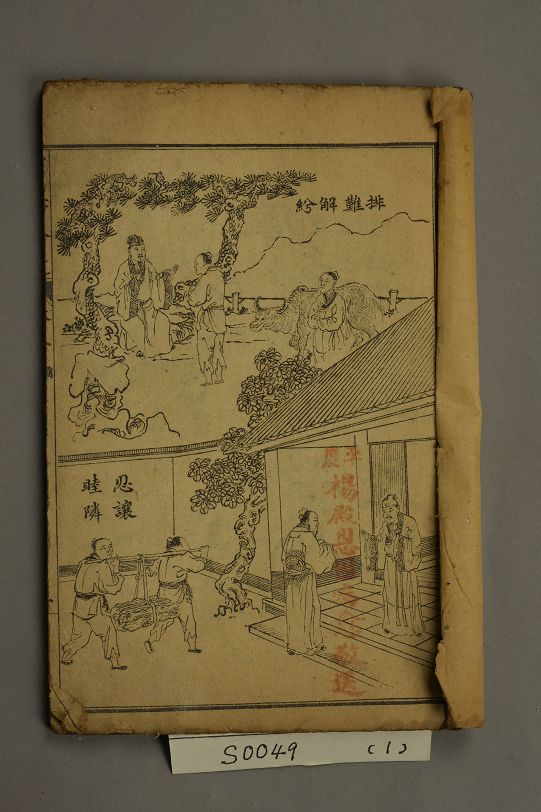 排難解紛
忍讓
睦隣
楊殿恩
敬送
S0049 (1)